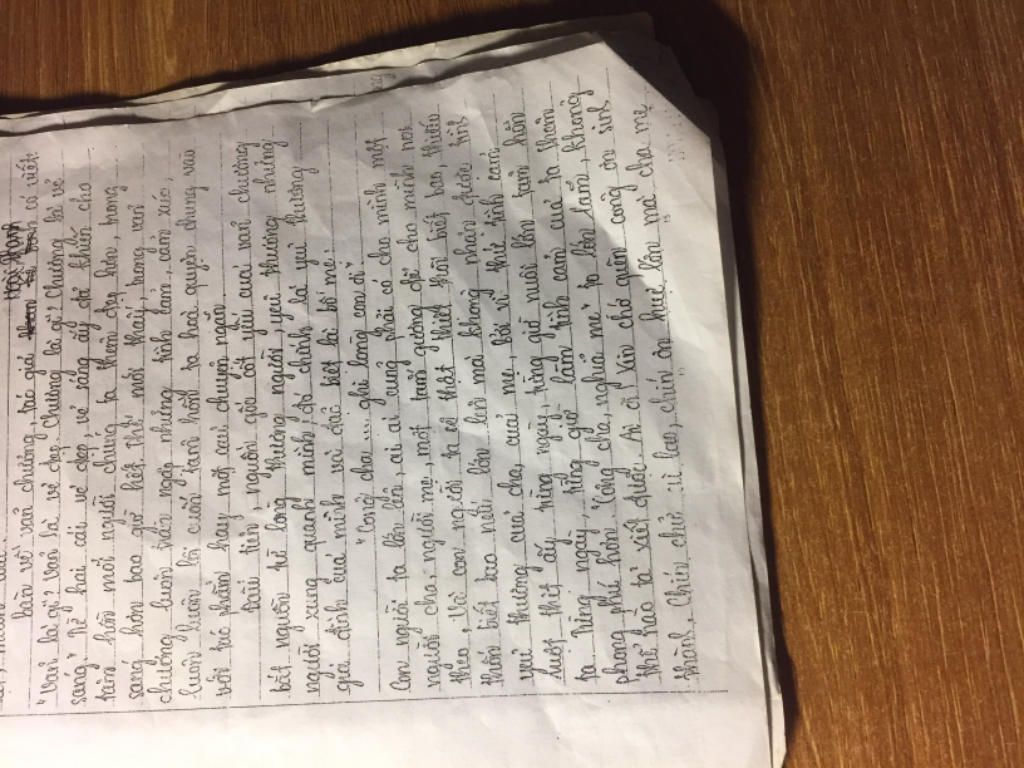 Hoài Thanh
bàn về văn chương, tác giả có viết
"Văn là gì? Văn là vẻ đẹp. Chương là gì? Chương là vẻ
sáng". Nhờ hai cái vẻ đẹp, vẻ sáng ấy đã khiến cho
tâm hồn mỗi người chúng ta thêm đẹp lên, trong
sáng hơn bao giờ hết. Thế mới thấy, trong văn
chương luôn tràn ngập những tình cảm, cảm xúc,
luôn luôn lôi cuốn tâm hồn ta hoà quyện chung vào
với tác phẩm hay một câu chuyện ngắn.
Đầu tiên, nguồn gốc cốt yếu của văn chương
bắt nguồn từ lòng thương người, yêu thương những
người xung quanh mình, đó chính là yêu thương
gia đình của mình và đặc biệt là bố mẹ.
"Công cha ... ghi lòng con ơi"
Con người ta lớn lên, ai ai cũng phải có cho mình một
người cha, người mẹ, một tấm gương để cho mình noi
theo. Và con người ta sẽ thật thiệt thòi biết bao, thiếu
thốn biết bao nếu lớn lên mà không nhận được tình
yêu thương của cha, của mẹ, bởi vì thứ tình cảm
ruột thịt ấy từng ngày, từng giờ nuôi lớn tâm hồn
ta. Từng ngày, từng giờ, làm tình cảm của ta thêm
phong phú hơn. "Công cha, nghĩa mẹ" to lớn lắm, không
thể nào tả xiết được. Ai ơi! Xin chớ quên công ơn sinh
thành, Chín chữ cù lao, chín ơn lắm mà cha mẹ